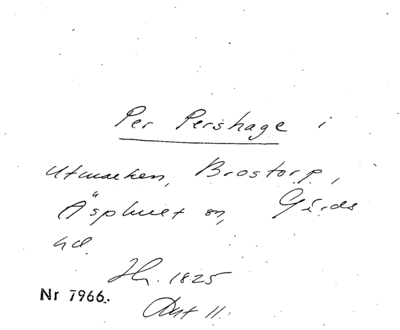 Per Pershage i
utmarken, Brostorp,
Äsphult sn, Gärds
hd.
Hr. 1825
Nr 7966.
Ant 11.